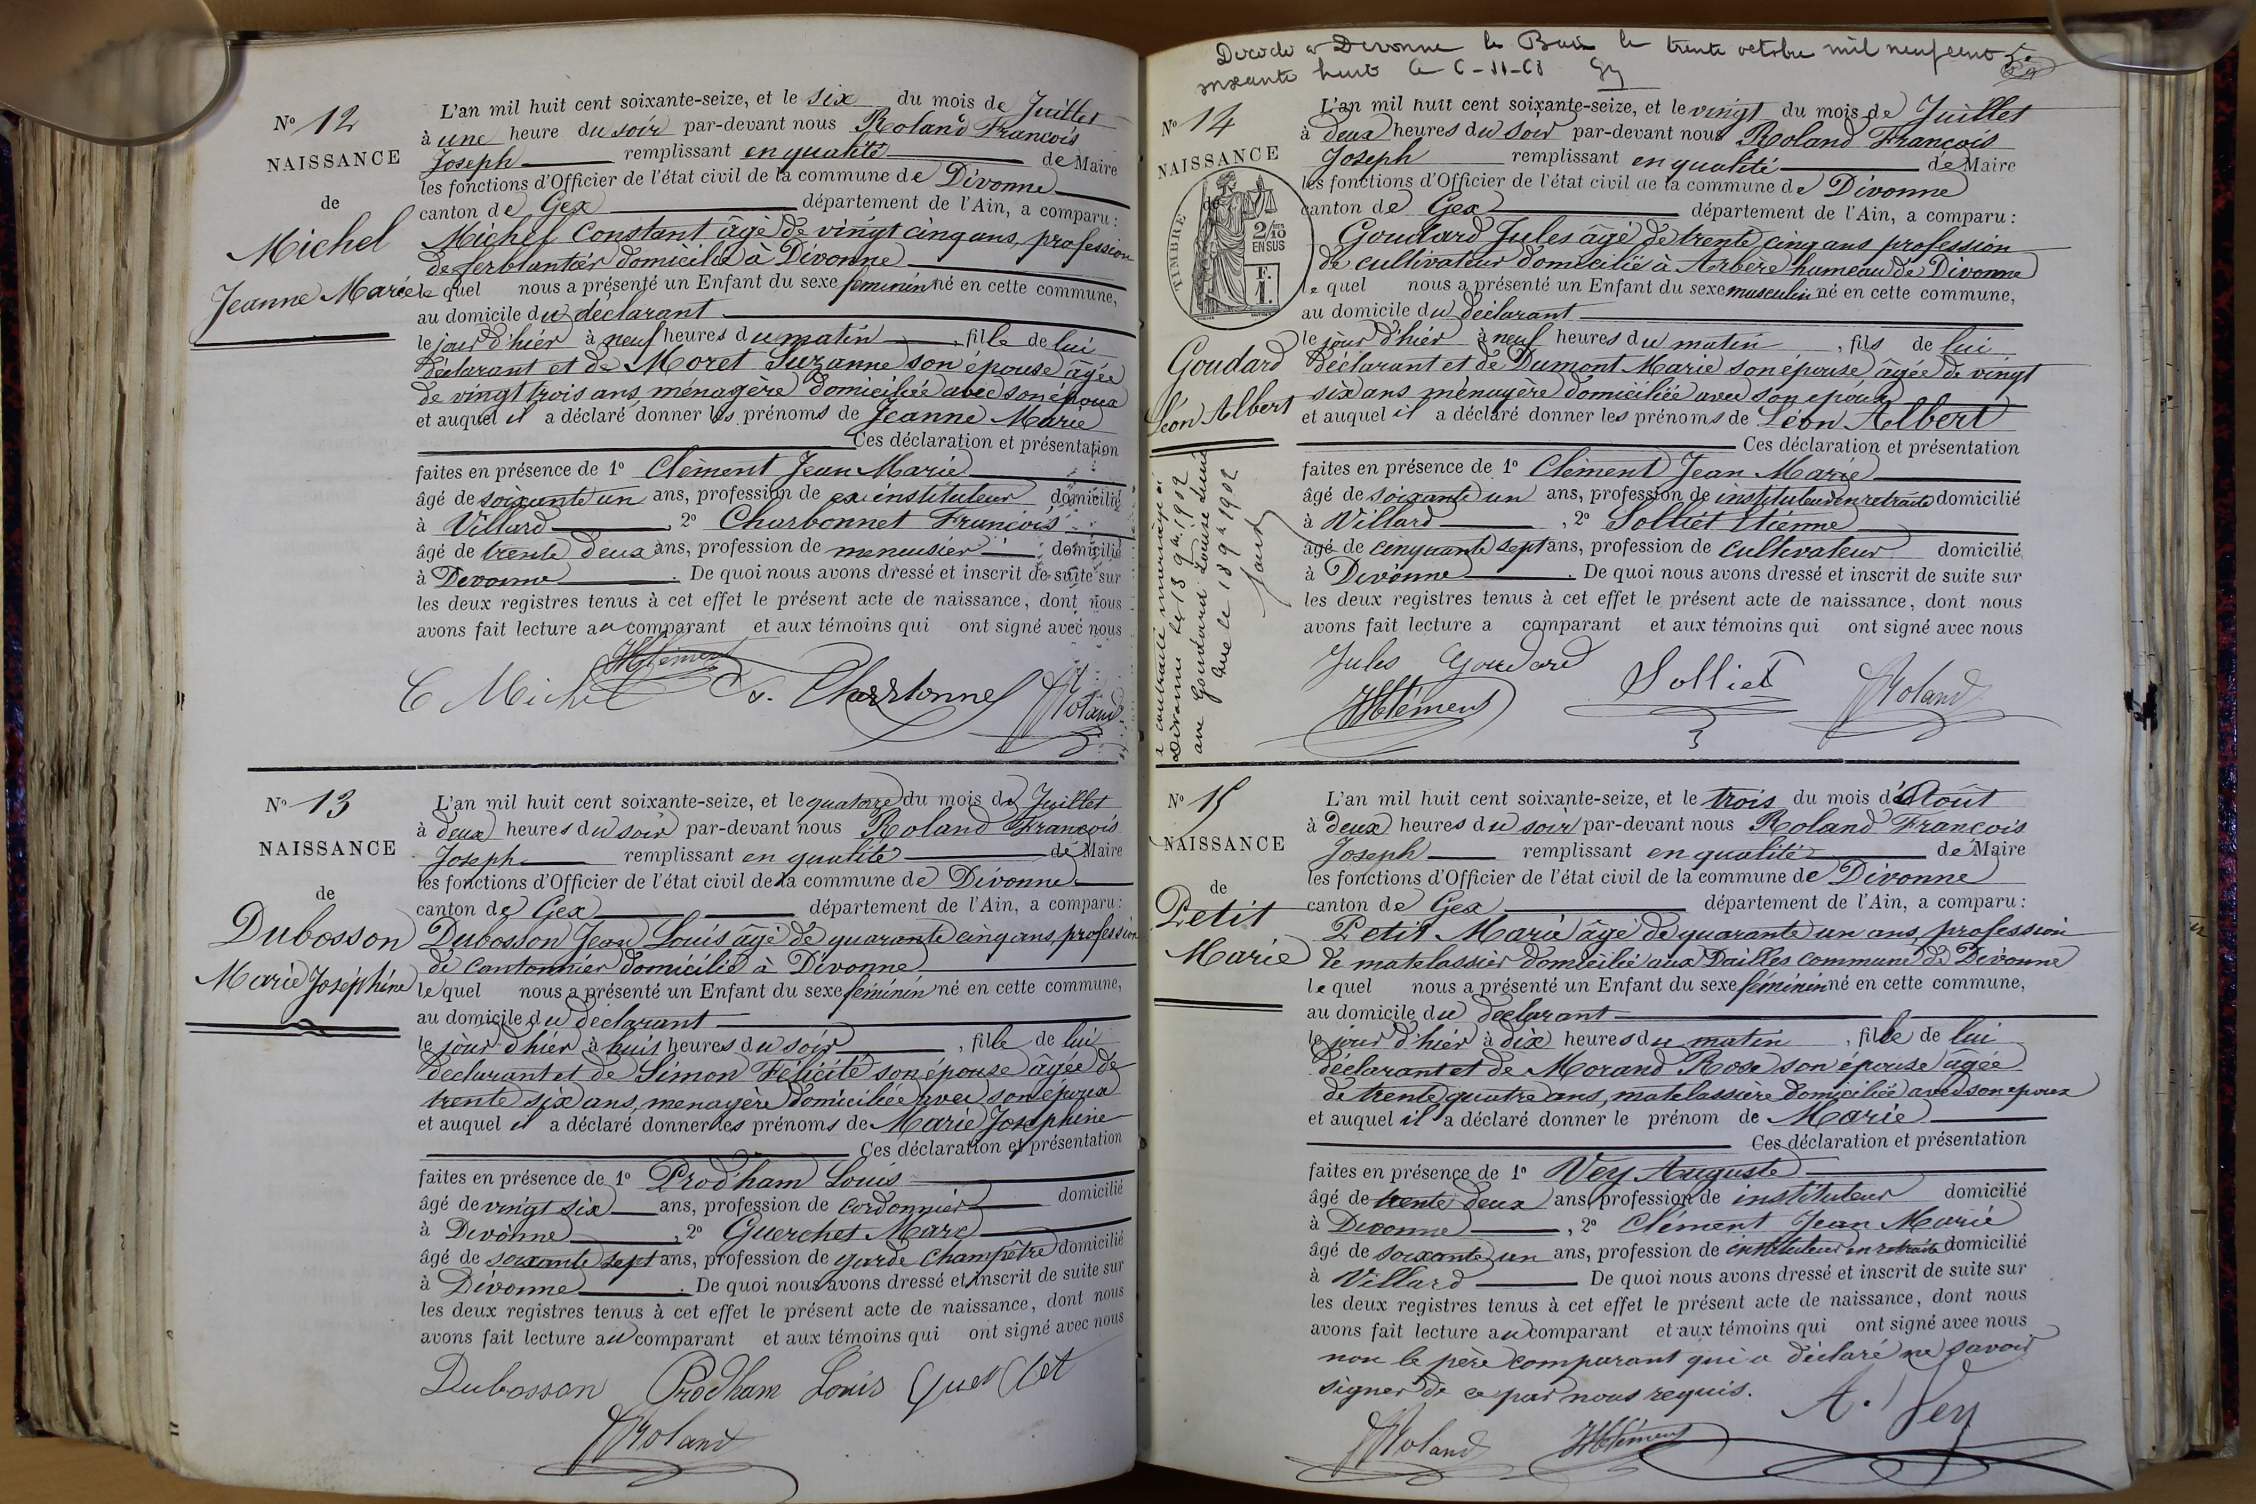 N° 12
NAISSANCE
de
Michel
Jeanne Marie
L'an mil huit cent soixante-seize, et le six du mois de Juillet
à une heure du soir par-devant nous Roland François
Joseph remplissant en qualité de Maire
les fonctions d'Officier de l'état civil de la commune de Divonne
canton de Gex département de l'Ain, a comparu :
Michel Constant âgé de vingt cinq ans, profession
de ferblantier domicilié à Divonne
le quel nous a présenté un Enfant du sexe féminin né en cette commune,
au domicile du déclarant
le jour d'hier à neuf heures du matin, fille de lui
déclarant et de Moret Suzanne son épouse âgée
de vingt trois ans ménagère domiciliée avec son époux
et auquel il a déclaré donner les prénoms de Jeanne Marie
Ces déclaration et présentation
faites en présence de 1° Clément Jean Marie
âgé de soixante un ans, profession de ex instituteur domicilié
à Villard, 2° Charbonnet François
âgé de trente deux ans, profession de menuisier domicilié
à Divonne. De quoi nous avons dressé et inscrit de suite sur
les deux registres tenus à cet effet le présent acte de naissance, dont nous
avons fait lecture au comparant et aux témoins qui ont signé avec nous
JMClément
C Michel F. Charbonnet JRoland
N° 13
NAISSANCE
de
Dubosson
Marie Joséphine
L'an mil huit cent soixante-seize, et le quatorze du mois de Juillet
à deux heures du soir par-devant nous Roland François
Joseph remplissant en qualité de Maire
les fonctions d'Officier de l'état civil de la commune de Divonne
canton de Gex département de l'Ain, a comparu :
Dubosson Jean Louis âgé de quarante cinq ans, profession
de cantonnier domicilié à Divonne
le quel nous a présenté un Enfant du sexe féminin né en cette commune,
au domicile du déclarant
le jour d'hier à huit heures du soir, fille de lui
déclarant et de Simon Félicité son épouse âgée de
trente six ans, menagère domiciliée avec son époux
et auquel il a déclaré donner les prénoms de Marie Joséphine
Ces déclaration et présentation
faites en présence de 1° Prodham Louis
âgé de vingt six ans, profession de cordonnier domicilié
à Divonne, 2° Guerchet Marc
âgé de soixante sept ans, profession de garde champêtre domicilié
à Divonne. De quoi nous avons dressé et inscrit de suite sur
les deux registres tenus à cet effet le présent acte de naissance, dont nous
avons fait lecture au comparant et aux témoins qui ont signé avec nous
Dubosson Prodham Louis Guerchet
JRoland
Décédé à Divonne les Bains le trente octobre mil neuf cent
soixante huit le 6-11-68
N° 14
NAISSANCE
de
TIMBRE
2/10
EN SUS
F.
1.
Goudard
Léon Albert
a contracté mariage à
Divonne le 18 9bre 1902
avec Goudard Louise
Gex le 18 9bre 1902
L'an mil huit cent soixante-seize, et le vingt du mois de Juillet
à deux heures du soir par-devant nous Roland François
Joseph remplissant en qualité de Maire
les fonctions d'Officier de l'état civil de la commune de Divonne
canton de Gex département de l'Ain, a comparu :
Goudard Jules âgé de trente cinq ans profession
de cultivateur domicilié à Arbère hameau de Divonne
le quel nous a présenté un Enfant du sexe masculin né en cette commune,
au domicile du déclarant
le jour d'hier à neuf heures du matin, fils de lui
déclarant et de Dumont Marie son épouse, âgée de vingt
six ans ménagère domiciliée avec son époux
et auquel il a déclaré donner les prénoms de Léon Albert
Ces déclaration et présentation
faites en présence de 1° Clément Jean Marie
âgé de soixante un ans, profession de instituteur en retraite domicilié
à Villard, 2° Solliet Etienne
âgé de cinquante sept ans, profession de cultivateur domicilié
à Divonne. De quoi nous avons dressé et inscrit de suite sur
les deux registres tenus à cet effet le présent acte de naissance, dont nous
avons fait lecture a comparant et aux témoins qui ont signé avec nous
Jules Goudard Solliet JRoland
JMClément
N° 15
NAISSANCE
de
Petit
Marie
L'an mil huit cent soixante-seize, et le trois du mois d'Août
à deux heures du soir par-devant nous Roland François
Joseph remplissant en qualité de Maire
les fonctions d'Officier de l'état civil de la commune de Divonne
canton de Gex département de l'Ain, a comparu :
Petit Marie âgé de quarante un ans, profession
de matelassier domicilié aux Dailles commune de Divonne
le quel nous a présenté un Enfant du sexe féminin né en cette commune,
au domicile du déclarant
le jour d'hier à dix heures du matin, fille de lui
déclarant et de Morand Rose son épouse âgée
de trente quatre ans, matelassière domiciliée avec son époux
et auquel il a déclaré donner le prénom de Marie
Ces déclaration et présentation
faites en présence de 1° Vey Auguste
âgé de trente deux ans, profession de instituteur domicilié
à Divonne, 2° Clément Jean Marie
âgé de soixante un ans, profession de instituteur en retraite domicilié
à Villard. De quoi nous avons dressé et inscrit de suite sur
les deux registres tenus à cet effet le présent acte de naissance, dont nous
avons fait lecture au comparant et aux témoins qui ont signé avec nous
non le père comparant qui a déclaré ne savoir
signer de ce par nous requis. A. Vey
JRoland JMClément